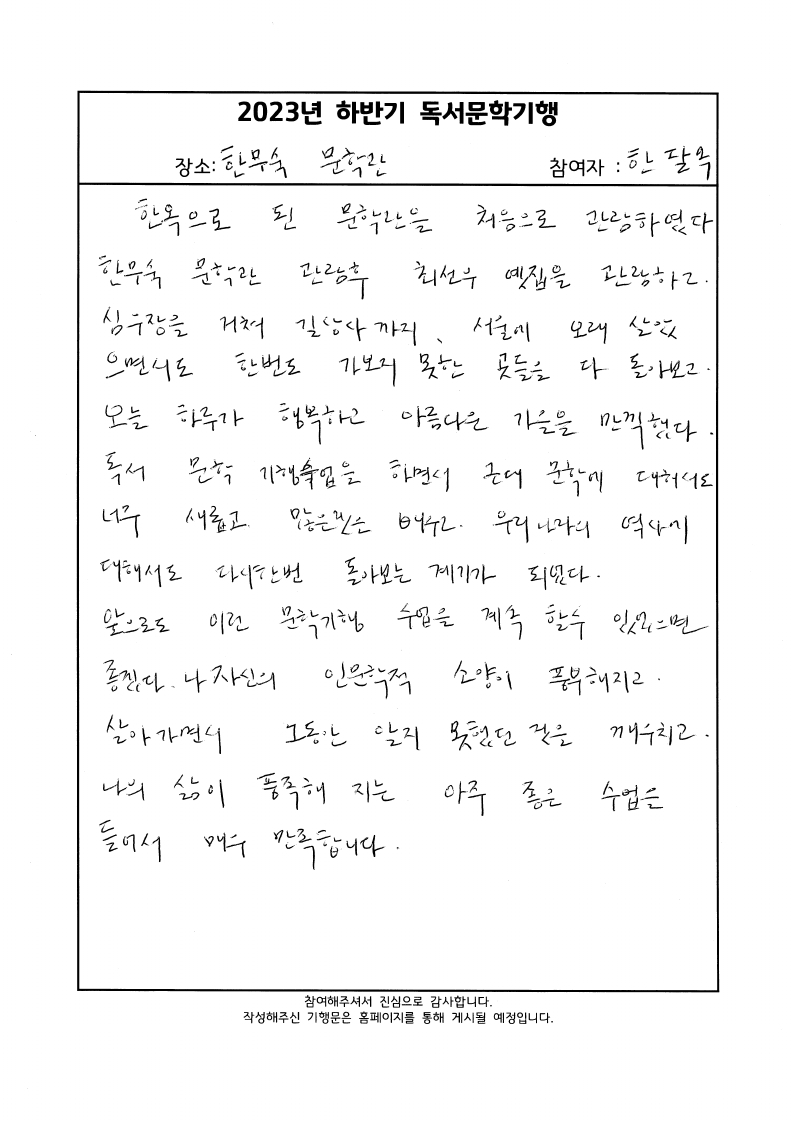 2023년 하반기 독서문학기행
장소: 한무숙 문학관 참여자 : 한 달옥
한옥으로 된 문학관을 처음으로 관람하였다
한무숙 문학관 관람후 최선우 옛집을 관람하고.
심우장을 거쳐 길상사 까지, 서울에 오래 살았
으면서도 한번도 가보지 못한 곳들을 다 돌아보고.
오늘 하루가 행복하고 아름다운 가을을 만끽했다.
독서 문학 기행수업을 하면서 근대 문학에 대해서도
너무 새롭고 많은것은 배우고. 우리나라의 역사에
대해서도 다시한번 돌아보는 계기가 되었다.
앞으로도 이런 문학기행 수업을 계속 할수 있었으면
좋겠다. 나 자신의 인문학적 소양이 풍부해지고.
살아가면서 그동안 알지 못했던 것을 깨우치고.
나의 삶이 풍족해 지는 아주 좋은 수업을
들어서 매우 만족합니다.
참여해주셔서 진심으로 감사합니다.
작성해주신 기행문은 홈페이지를 통해 게시될 예정입니다.